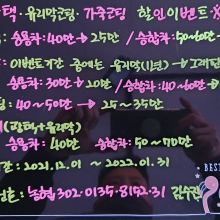 택·유리막코팅·가죽코팅 할인이벤트
승용차:40만→25만 / 승합차:50~60만
이벤트기간 중에는 유리막(1년) →
승용차:30만→20만 / 승합차:40~60만→
:40~50만→25~35만
(광택+유리막)
승용차:40만 승합차:50~70만
간:2021.12.01 ~ 2022.01.31
농협302·0135·8152·31 김
BEST